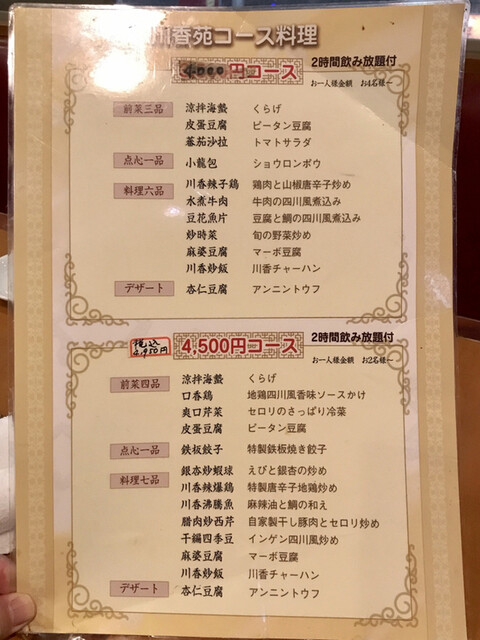 川香苑コース料理
円コース 2時間飲み放題付
お一人様金額 お4名様〜
前菜三品 涼拌海蜇 くらげ
皮蛋豆腐 ピータン豆腐
蕃茄沙拉 トマトサラダ
点心一品 小籠包 ショウロンポウ
料理六品 川香辣子鶏 鶏肉と山椒唐辛子炒め
水煮牛肉 牛肉の四川風煮込み
豆花魚片 豆腐と鯛の四川風煮込み
炒時菜 旬の野菜炒め
麻婆豆腐 マーボ豆腐
川香炒飯 川香チャーハン
デザート 杏仁豆腐 アンニントウフ
税込 4,950円 4,500円コース 2時間飲み放題付
お一人様金額 お2名様〜
前菜四品 涼拌海蜇 くらげ
口香鶏 地鶏四川風香味ソースかけ
爽口芹菜 セロリのさっぱり冷菜
皮蛋豆腐 ピータン豆腐
点心一品 鉄板餃子 特製鉄板焼き餃子
料理七品 銀杏炒蝦球 えびと銀杏の炒め
川香辣爆鶏 特製唐辛子地鶏炒め
川香沸騰魚 麻辣油と鯛の和え
腊肉炒西芹 自家製干し豚肉とセロリ炒め
干編四季豆 インゲン四川風炒め
麻婆豆腐 マーボ豆腐
川香炒飯 川香チャーハン
デザート 杏仁豆腐 アンニントウフ